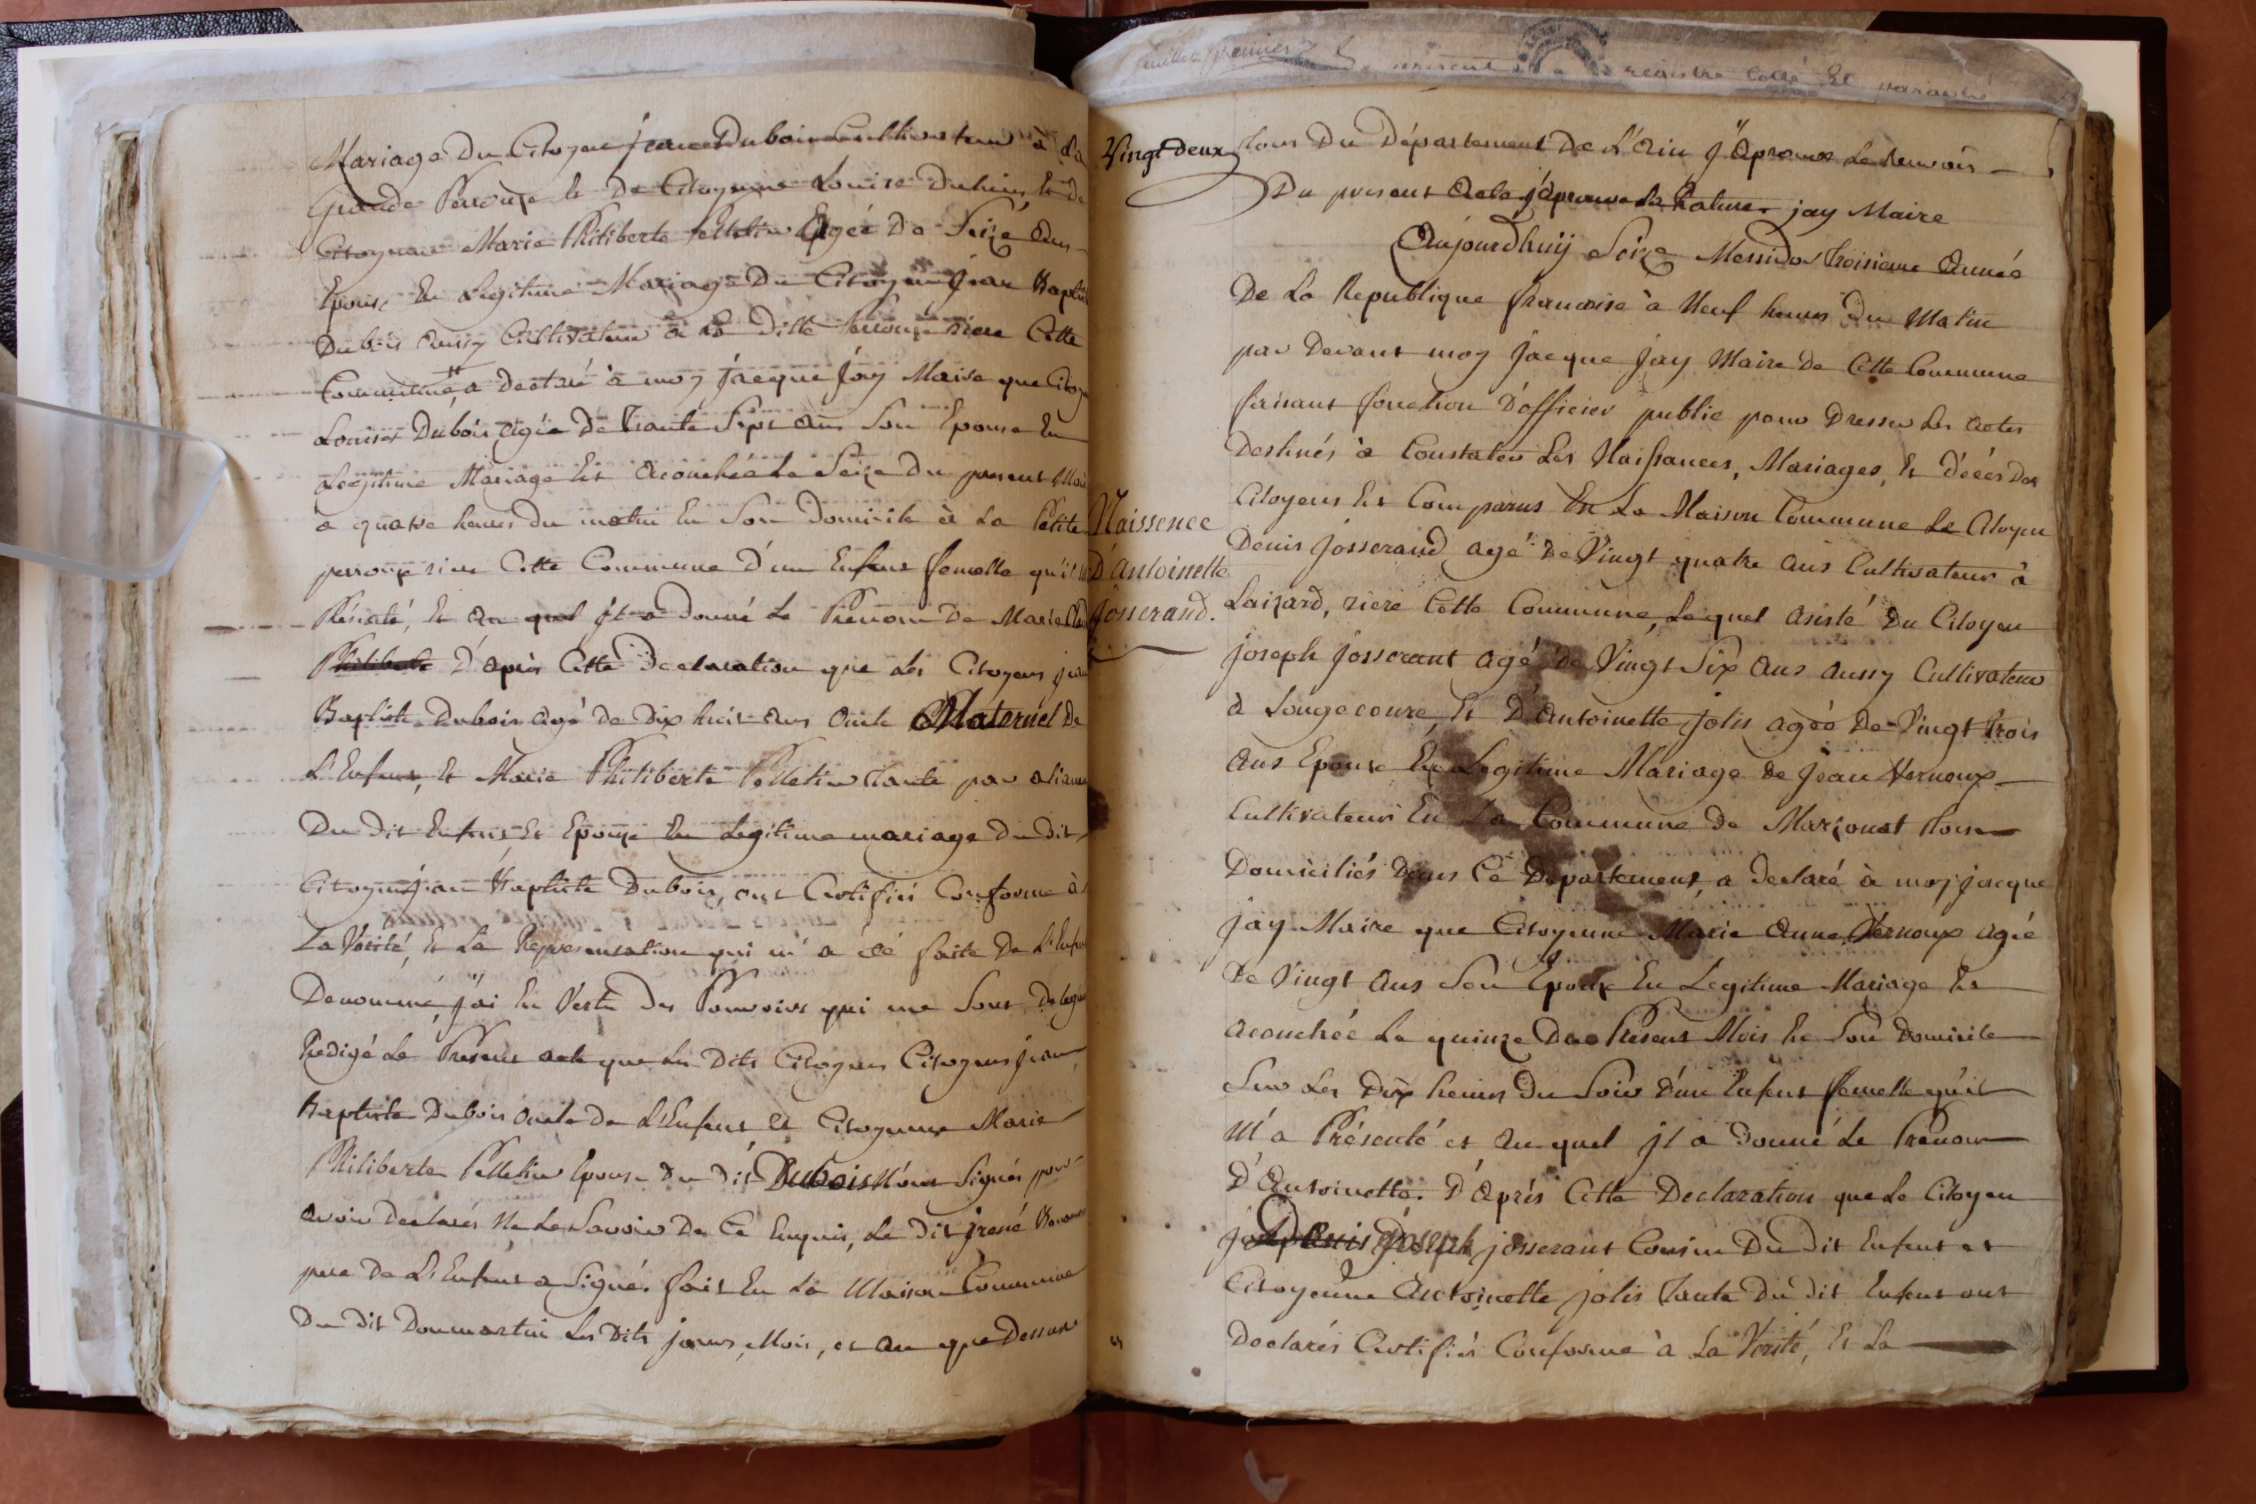 Mariage Du Citoyen Dubois Cultivateur à La
Grande Perrouze et De Citoyenne Louise et De
Citoyenne Marie Philiberte Pelletier Agée De Seize Ans
Epouse En Legitime Mariage Du Citoyen Jean Baptiste
Dubois aussy Cultivateur à La Ditte Perrouze riere Cette
Commune, a Declaré à moy Jacque Jay Maire que
Louise Dubois agée De Trante Sept ans Son Epouse En
Legitime Mariage Est Acouchée Le Seize Du present Mois
a quatre heures Du matin En Son Domicile à La Petite
perrouze riere Cette Commune D'un Enfent femelle qu'il
Présenté, Et Au quel Jl a Donné Le Prénom De Marie
Philiberte D'après Cette Declaration que Les Citoyens Jean
Baptiste Dubois agé De Dix huit ans Oncle Maternel De
L'Enfent, Et Marie Philiberte Pelletier Tante par aliance
Du Dit Enfent, Et Epouze En Legitime mariage Du Dit
Citoyen Jean Baptiste Dubois, ont Certifiés Conforme à
La Vérité, Et La Representation qui m'a été faite De L'Enfent
Denommé, J'ai En Vertu Des Pouvoirs qui me Sont
Redigé Le Present acte que Les Dits Citoyens Citoyens Jean
Baptiste Dubois Oncle De L'Enfent Et Citoyenne Marie
Philiberte Pelletier Epouse Du Dit Dubois N'ont Signés pour
avoir Declarés Ne Le Savoir De Ce Enquis, Le Dit Jrené
pere De L'Enfent a Signé. fait En La Maison Commune
Du Dit Dommartin Les Dits jours, Mois, et an que Dessus
Vingt Deux
Du Département De L'Ain J'aprouve Le Renvois
Du present Acte j'aprouve La Rature. jay Maire
Aujourdhuÿ Seize Messidor Troisieme Année
De La Republique francoise à Neuf heures Du Matin
par Devant moy Jacque Jay Maire De Cette Commune
faisant fonction D'officier public pour Dresser Les Actes
Destinés à Constater Les Naissances, Mariages, Et Décés Des
Citoyens Est Comparus En La Maison Commune Le Citoyen
Naissence
D'Antoinette
Josserand.
Denis Josserand agé De Vingt quatre ans Cultivateur à
Laizard, riere Cette Commune, Lequel Asisté Du Citoyen
Joseph Josserant agé De Vingt Six ans aussy Cultivateur
à Et D'Antoinette Jolis agéé De Vingt Trois
ans Epouse En Legitime Mariage De Jean Vernoux
Cultivateurs En La Commune De Marzonat
Domiciliés Dans Cè Département, a Declaré à moy Jacque
Jay Maire que Citoyenne Marie Anne Vernoux agée
De Vingt Ans Son Epouse En Legitime Mariage Est
Acouchée Le quinze Du Présent Mois En Son Domicile
Sur Les Dix heures Du Soir D'un Enfent femelle qu'il
M'a Présenté et Au quel Jl a Donné Le Prénom
D'Antoinette. D'Aprés Cette Declaration que Le Citoyen
Joseph Josserant Cousin Du Dit Enfent et
Citoyenne Antoinette Jolis Tante Du Dit Enfent ont
Declarés Certifiés Conforme à La Vérité, Et La